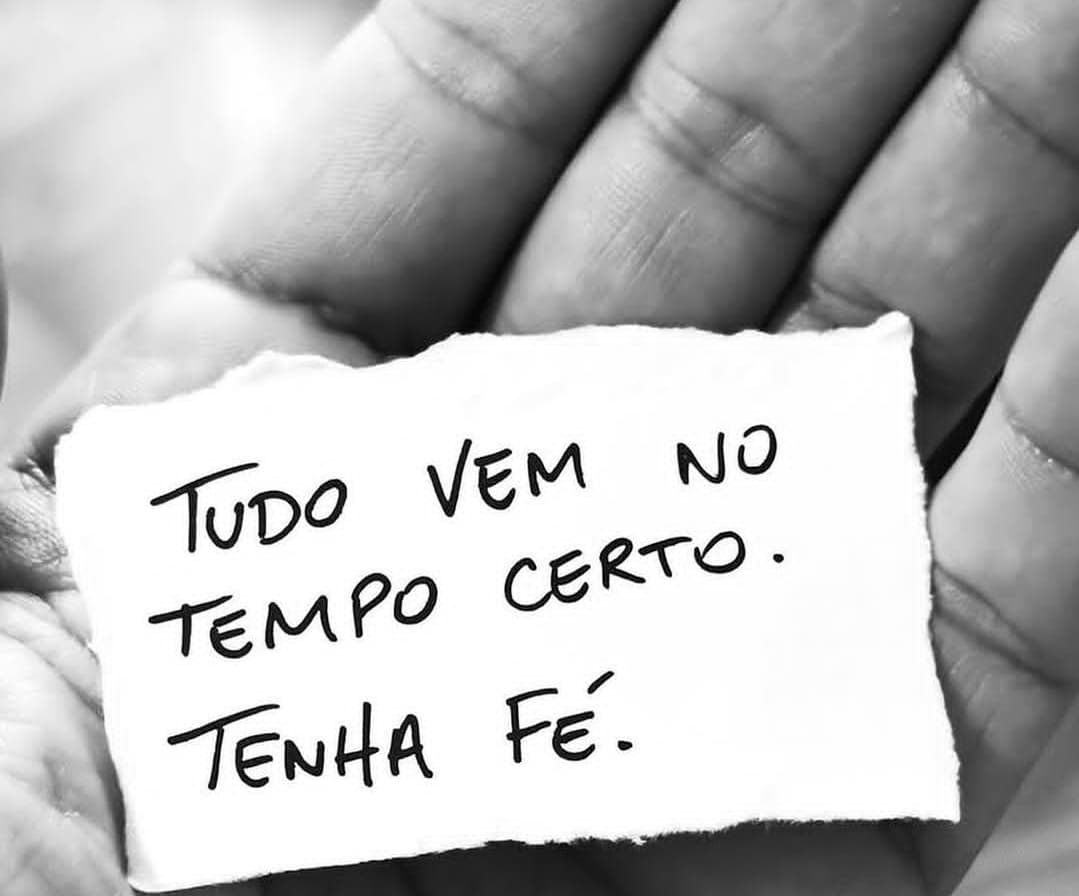 TUDO VEM NO
TEMPO CERTO.
TENHA FÉ.